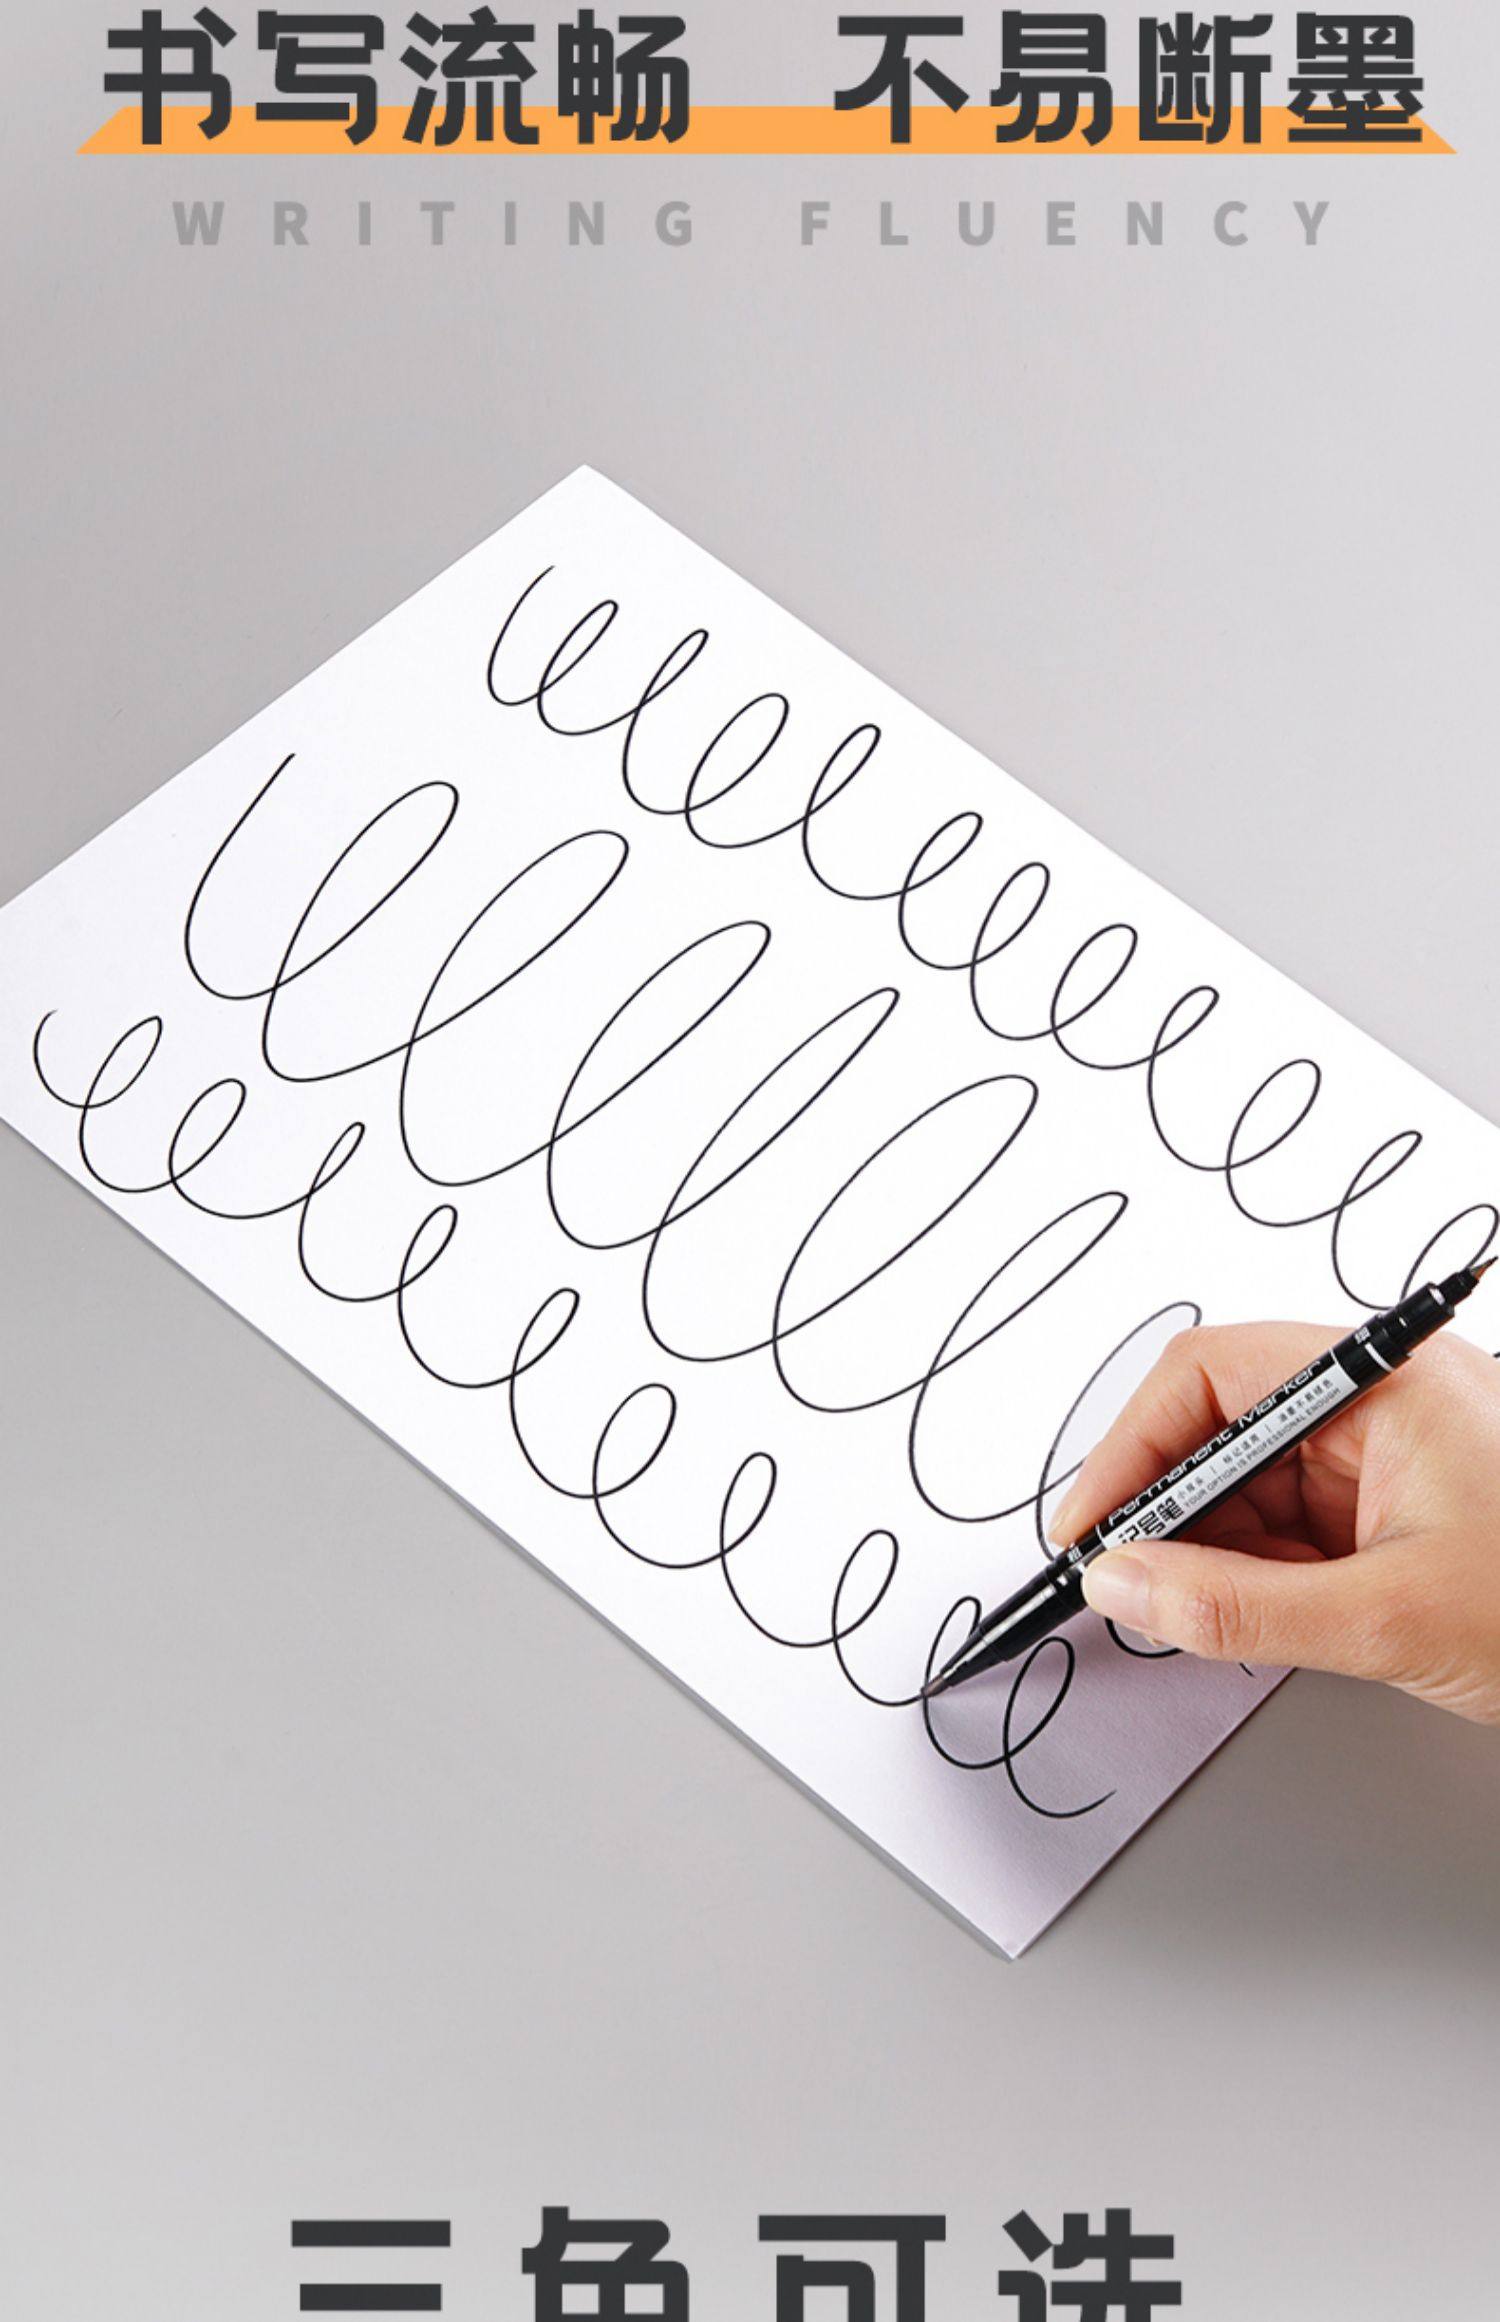 书写流畅 不易断墨
WRITING FLUENCY
Permanent Marker
记号笔
小双头 | 标记适用 | 油墨不易掉色
YOUR OPTION IS PROFESSIONAL ENOUGH
三色可选